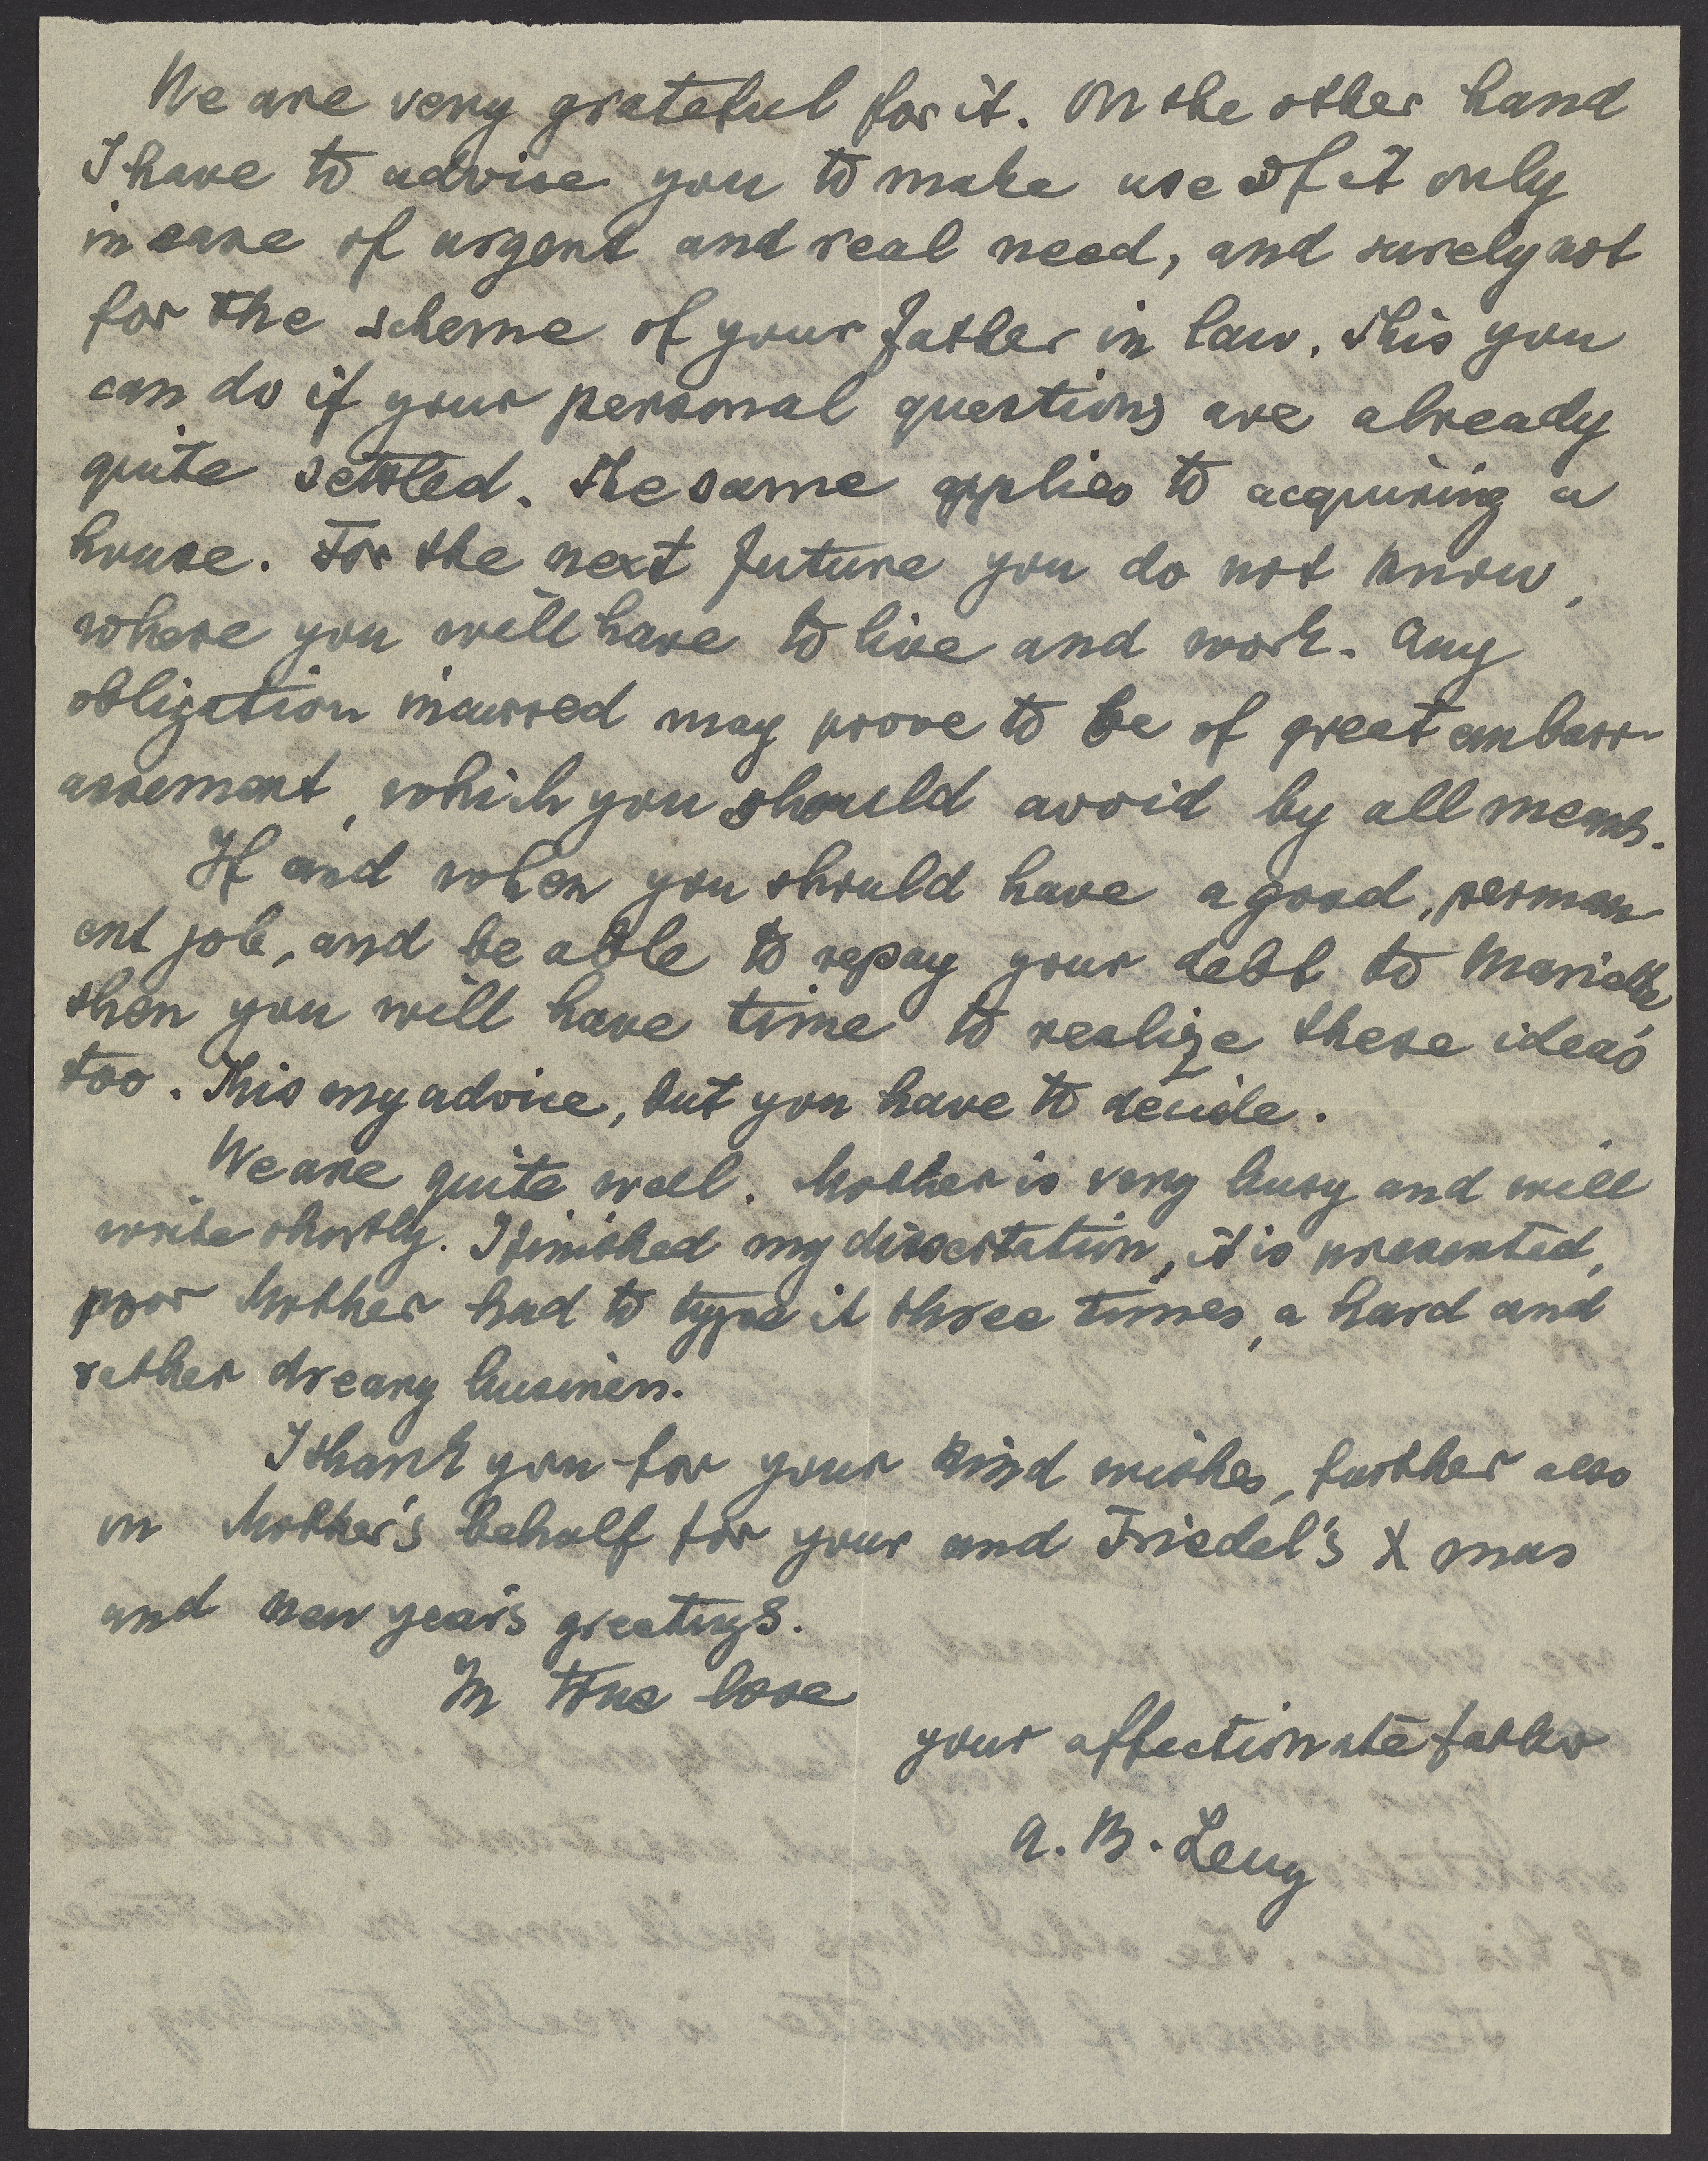 We are very grateful for it. On the other hand
I have to advise you to make use of it only
in case of urgent and real need, and surely not
for the scheme of your father in law. This you
can do if your personal questions are already
quite settled. The same applies to acquiring a
house. For the next future you do not know,
where you will have to live and work. Any
obligation incurred may prove to be of great embarr-
assement, which you should avoid by all means.
If and when you should have a good, perman-
ent job, and be able to repay your debt to Mariette,
then you will have time to realize these ideas
too. This my advice, but you have to decide.
We are quite well. Mother is very busy and will
write shortly. I finished my dissertation, it is presented,
poor Mother had to type it three times, a hard and
rather dreary business.
I thank you for your kind wishes, further also
in Mother's behalf for your and Friedel's X mas
and new year's greetings.
In true love
your affectionate father
A. B. Levy